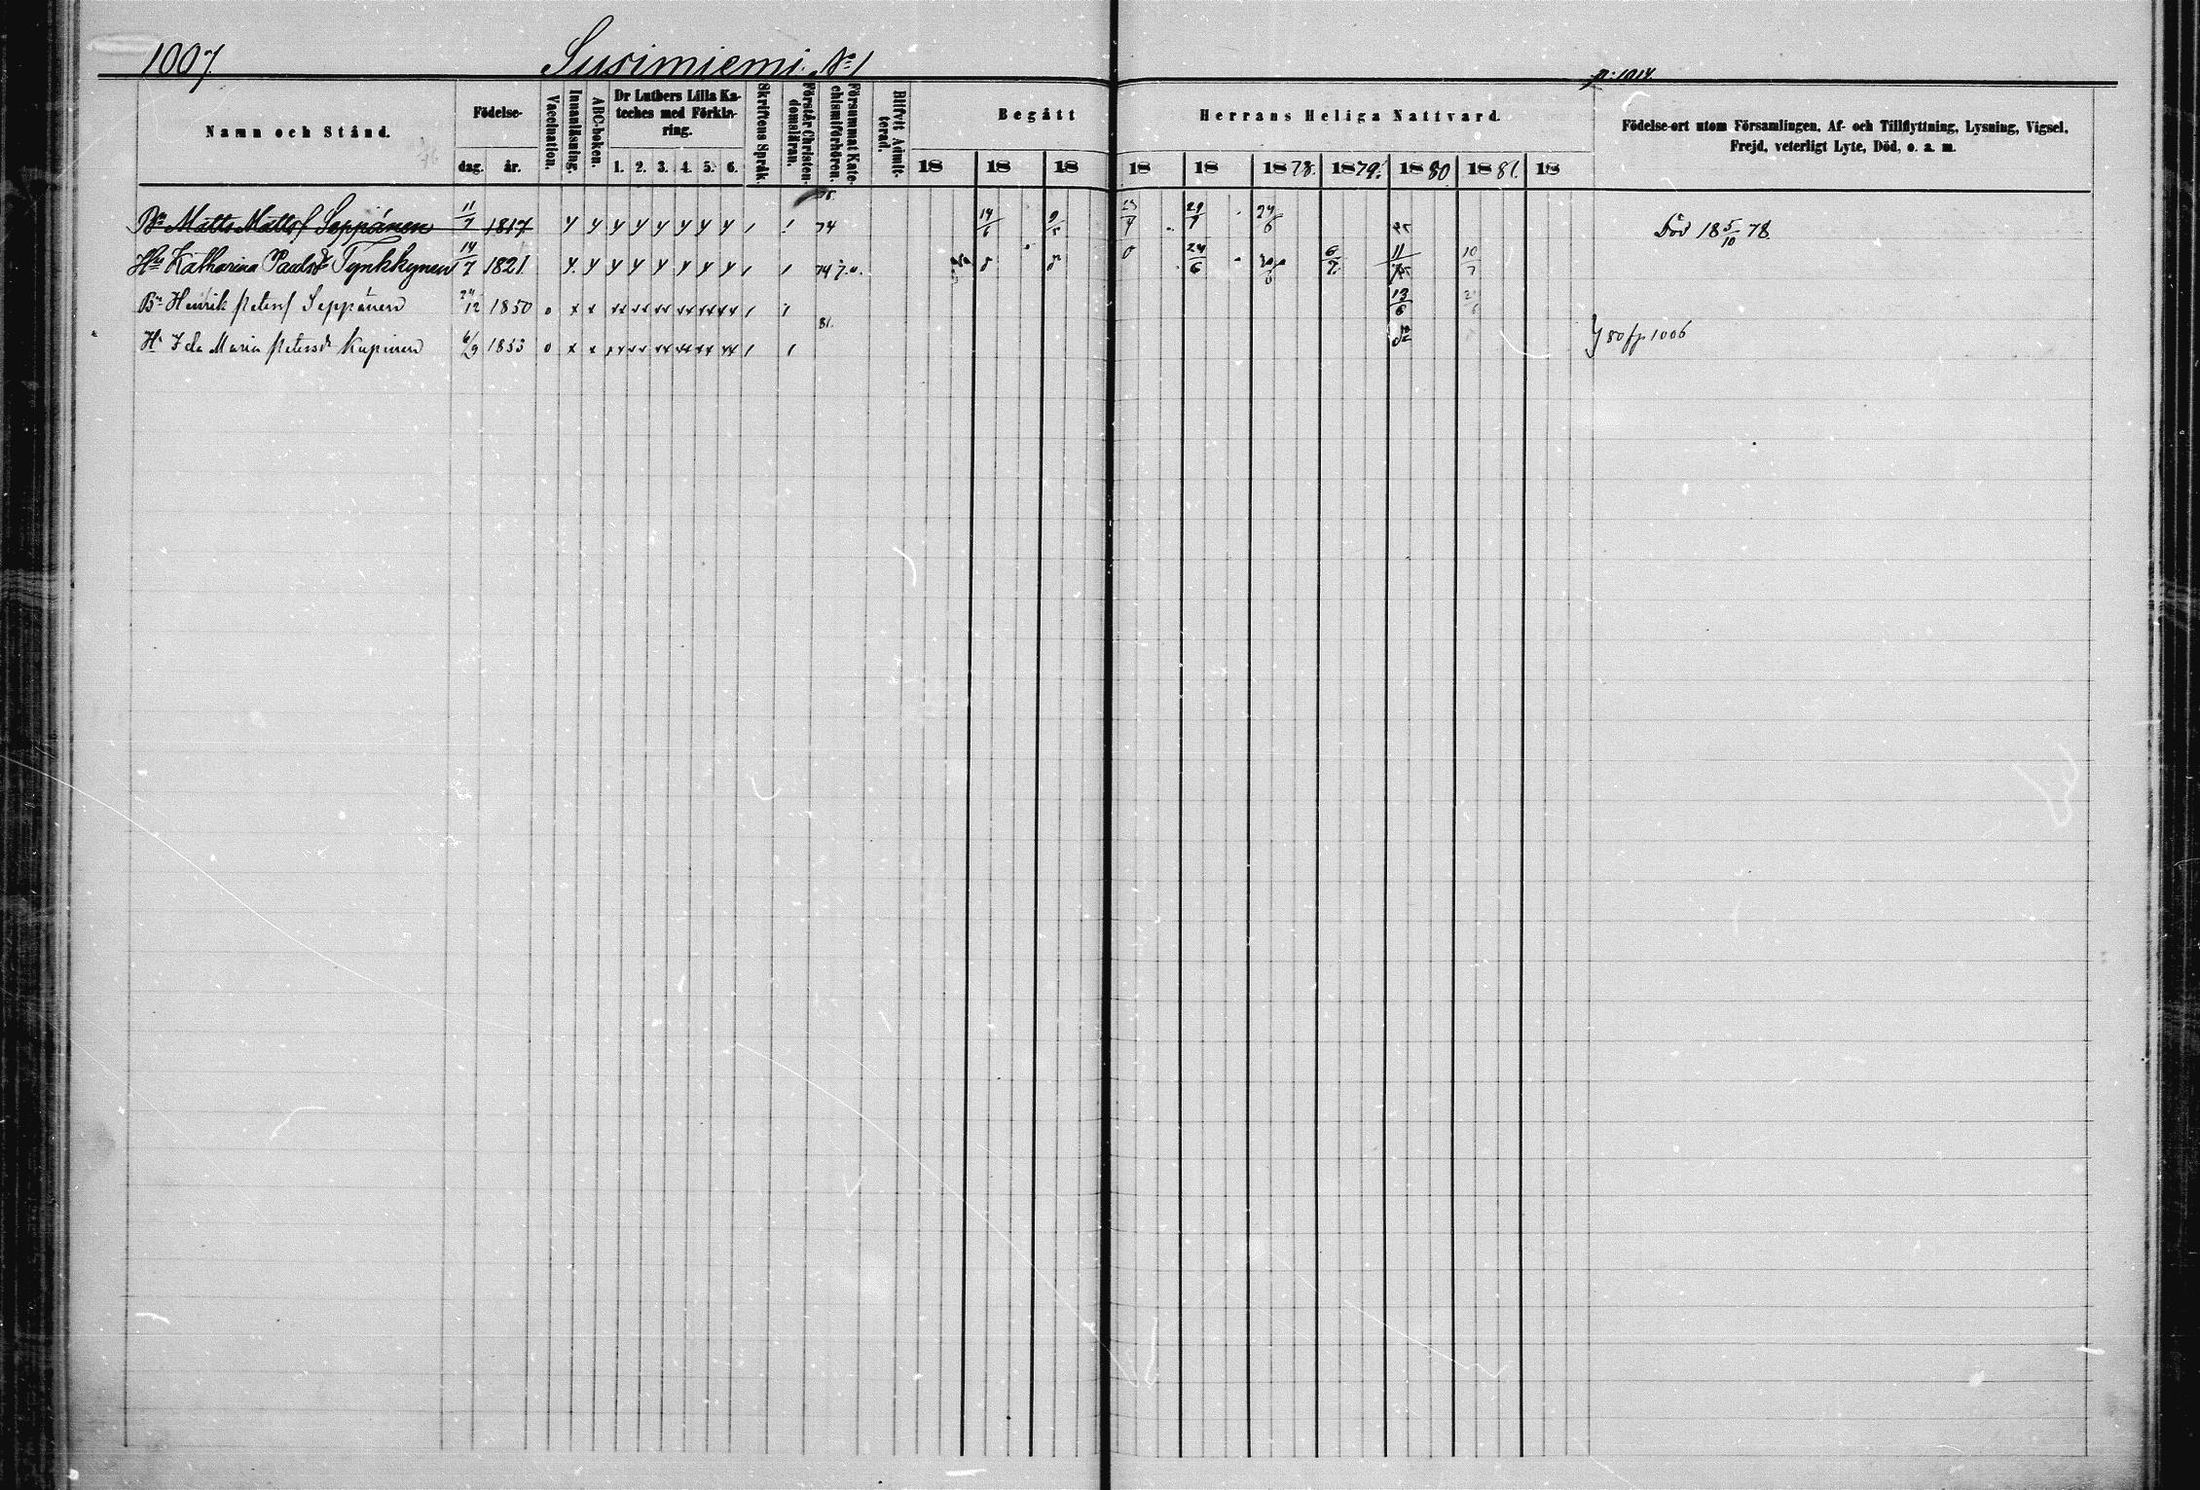 1007.
Susimiemi. No 1
p: 1014.
Namn och Stånd.
Födelse-
dag.
år.
Vaccination.
Innanläsning.
ABC-boken.
Dr Luthers Lilla Ka-
teches med Förkla-
ring.
1. 2. 3. 4. 5. 6.
Skriftens Språk.
Förstår Christen-
domsläran.
Försummat Kate-
chismiförhören.
Blifvit Admit-
terad.
Begått Herrans Heliga Nattvard.
18 18 18 18 18 1878. 1879. 1880 1881. 18
Födelse-ort utom Församlingen, Af- och Tillflyttning, Lysning, Vigsel,
Frejd, veterligt Lyte, Död, o. a. m.
Bn Matts Mattsf Seppänen 11/7 1817 y y y y y y y y 74 14/6 29/9 24/6 Död 18 5/10 78.
Hu Katharina Paulsd Tynkkynen 14/7 1821. y y y y y y y y 74 24/6 6/7 11 10/7
Bn Henrik Petersf Seppänen 24/12 1850 13/6
81.
Hu Ida Maria Petersdr Kupinen 6/9 1853 80 fr. 1006